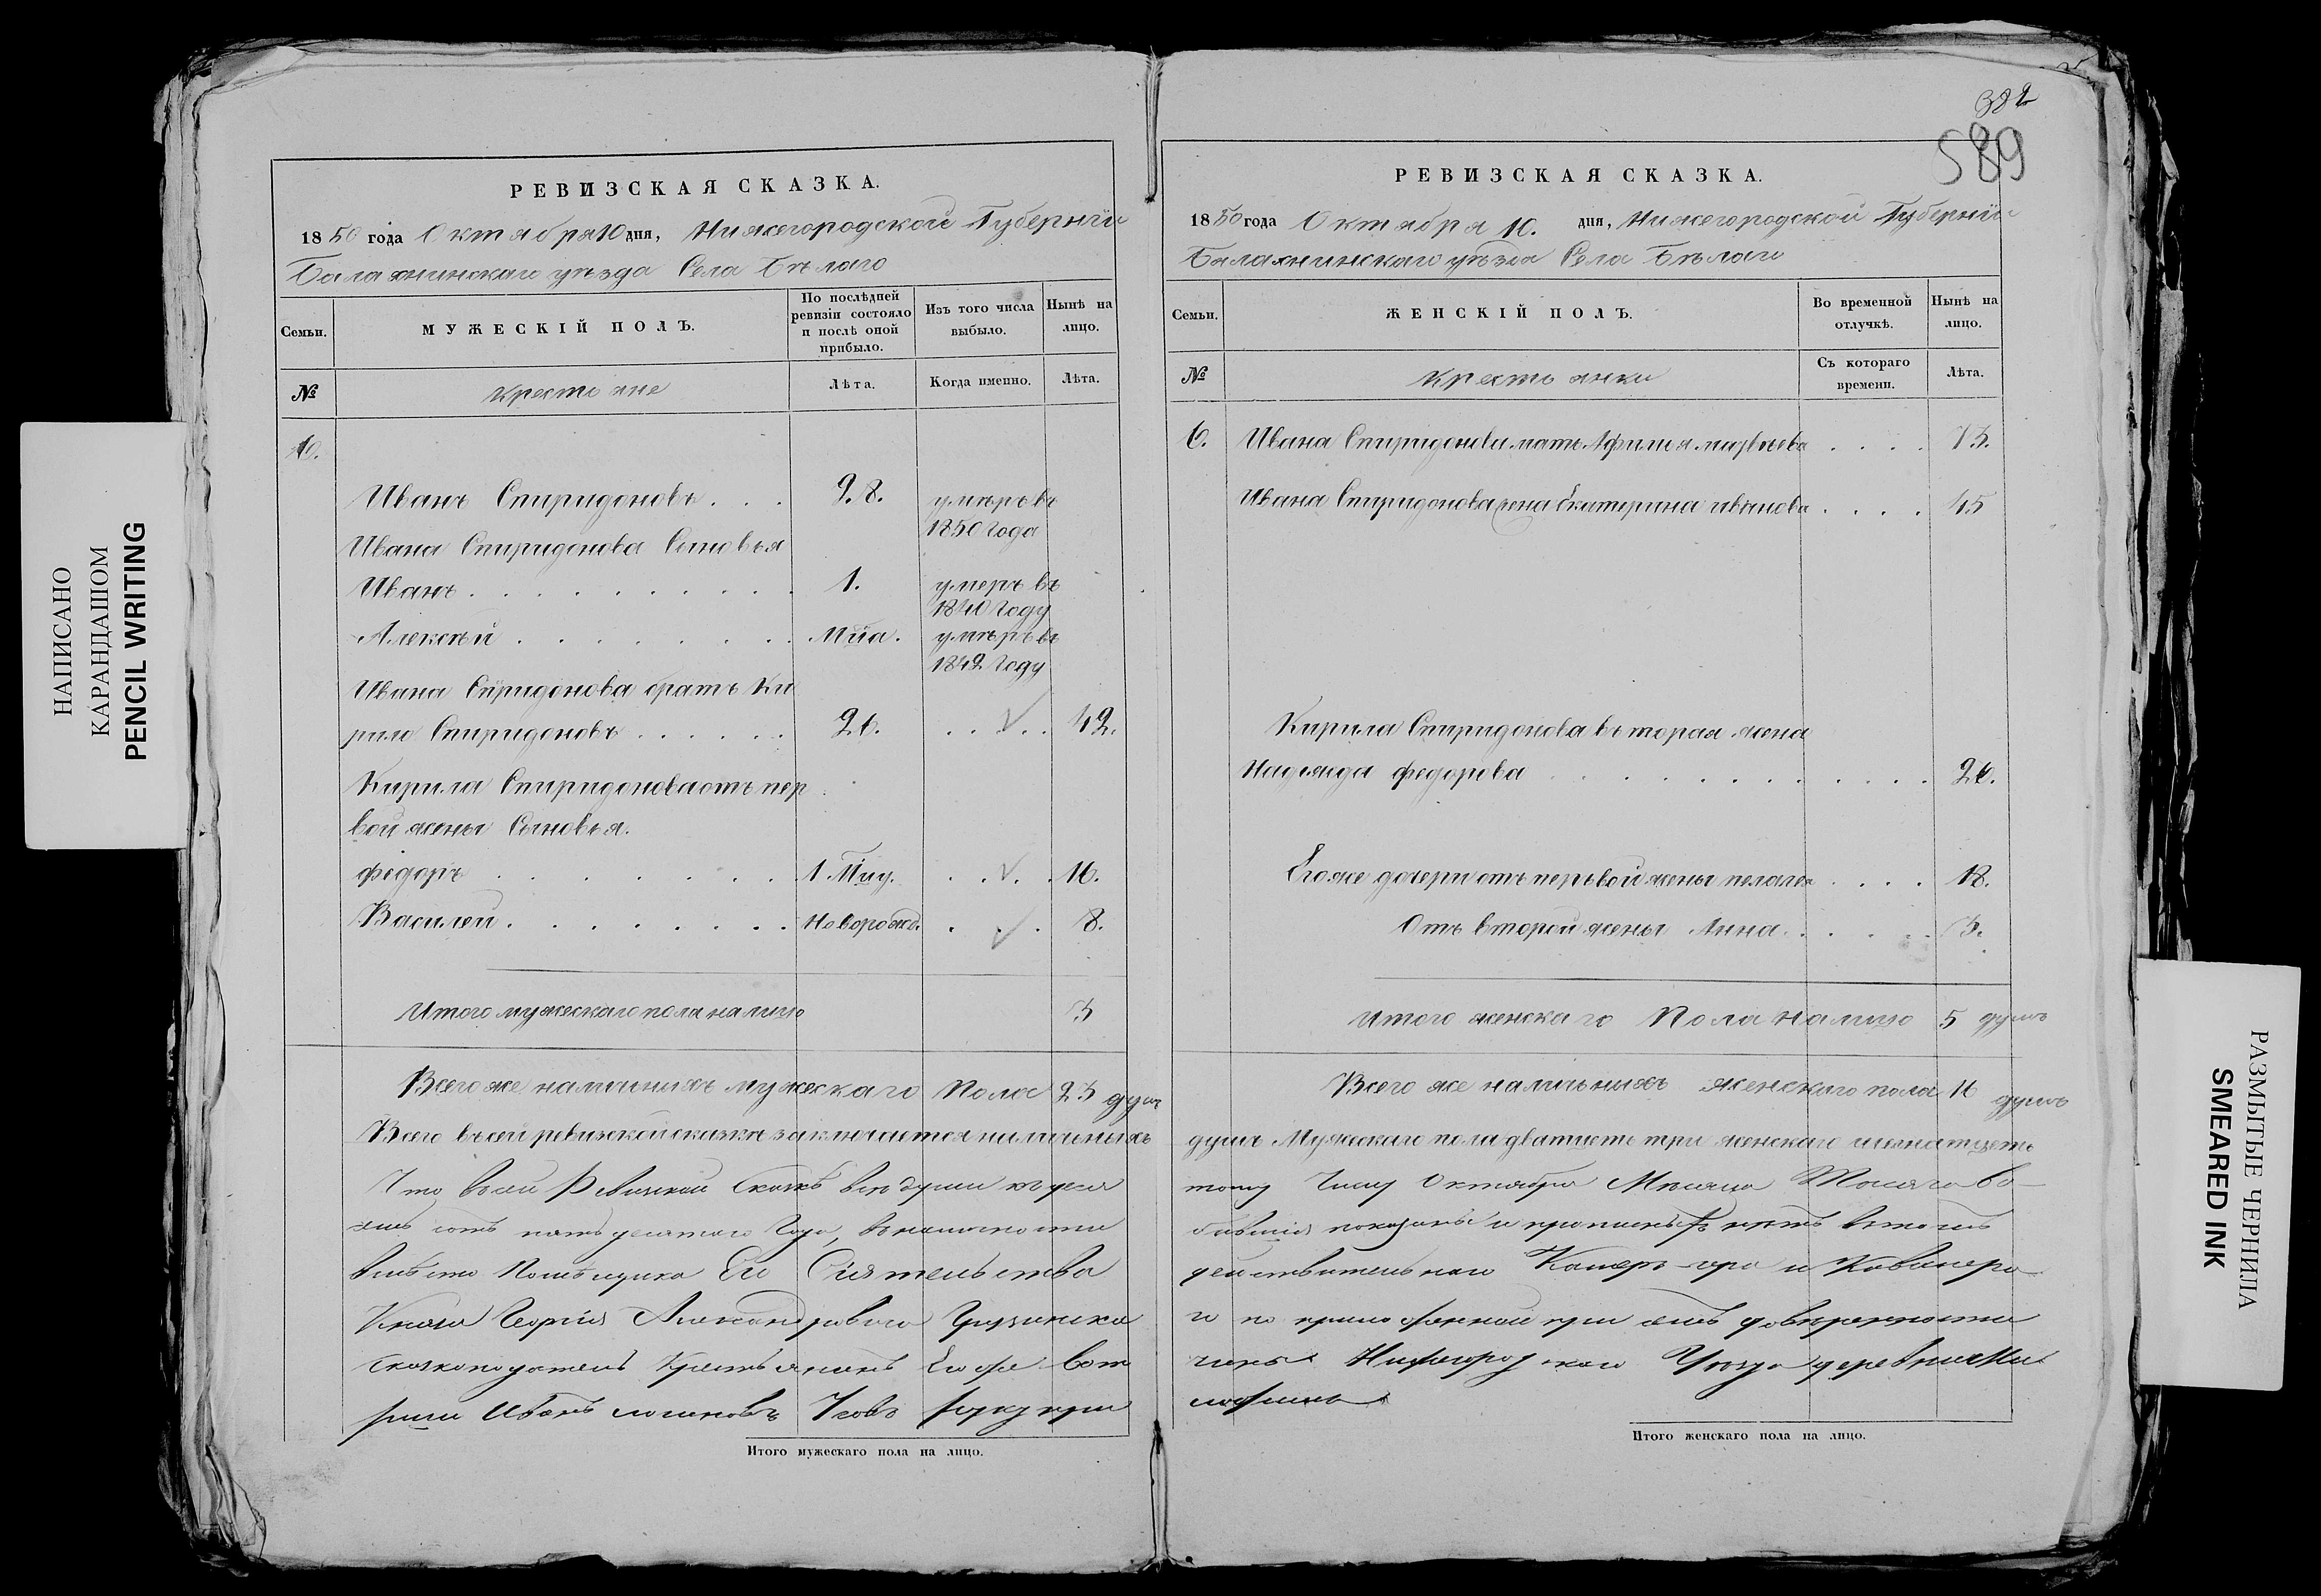 НАПИСАНО
КАРАНДАШОМ
PENCIL WRITING
РЕВИЗСКАЯ СКАЗКА.
1850 года Октября 10 дня, Нижегородской Губерніи
Балахнинскаго уѣзда Села Бѣлаго
Семьи.
МУЖЕСКІЙ ПОЛЪ.
По послѣдней
ревизіи состояло
и послѣ оной
прибыло.
Изъ того числа
выбыло.
Нынѣ на
лицо.
№
Крестьяне
Лѣта.
Когда именно.
Лѣта.
Иванъ Спиридоновъ . . . 28. умѣръ въ
1850 года
Ивана Спиридонова Сыновья
Иванъ . . . 1. умеръ въ
1840 Году
Алексѣй . . . умѣръ въ
1842 Году
Ивана Спиридонова братъ Ки
рило Спиридоновъ . . . 26. . . . 42.
Кирила Спиридонова отъ пер
вой жены Сыновья.
федоръ . . . 16.
Василей . . . Новорожд. . . . 8.
Итого мужескаго пола на лицо 3
Всего же наличныхъ мужескаго Пола 23 душъ
Всего въ сей ревизской сказкѣ заключается наличныхъ
Что в сей Ревизской Сказкѣ всѣ души къ
сотъ пятьдесятаго Года, в наличности
вмѣсто Помѣщика Его Сіятельства
Князя Георгія Александровича Грузинска
сказкоподатель Крестьянинъ Его же вот
Иванъ руку при
Итого мужескаго пола на лицо.
382
589
РЕВИЗСКАЯ СКАЗКА.
1850 года Октября 10. дня, Нижегородской Губерніи
Балахнинскаго уѣзда Села Бѣлаго
Семьи.
ЖЕНСКІЙ ПОЛЪ.
Во временной
отлучкѣ.
Нынѣ на
лицо.
№
Крестьянки
Съ котораго
времени.
Лѣта.
Ивана Спиридонова мать . . . 73.
Ивана Спиридонова жена Екатерина иванова . . . 45
Кирила Спиридонова въторая жена
Надежда федорова . . . 26.
Его же дочери отъ перьвой жены пелагея . . . 18.
Отъ второй жены Анна . . . 3.
Итого женскаго Пола на лицо 5 душъ
Всего же наличныхъ женскаго пола 16 душъ
душъ Мужескаго пола дватцеть три женскаго шеснатцеть
тому Числу Октября Мѣсяца Тысяча во-
показаны и нѣтъ в томъ
действительнаго Камеръ-гера и Кавалера
го по приложенной при семъ довѣренности
Нижегородскаго Уѣзда деревни
ложилъ
Итого женскаго пола на лицо.
РАЗМЫТЫЕ ЧЕРНИЛА
SMEARED INK